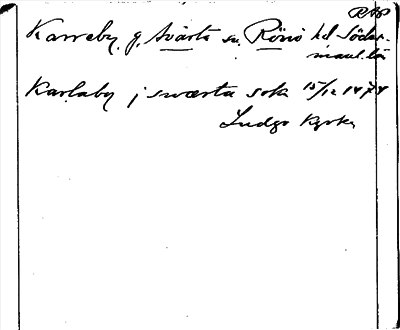 RAP
Karreby g. Svärta sn. Rönö hd Söder-
manl. län
Karlaby j swærta sokn 15/12 1474
Ludgo kyrka